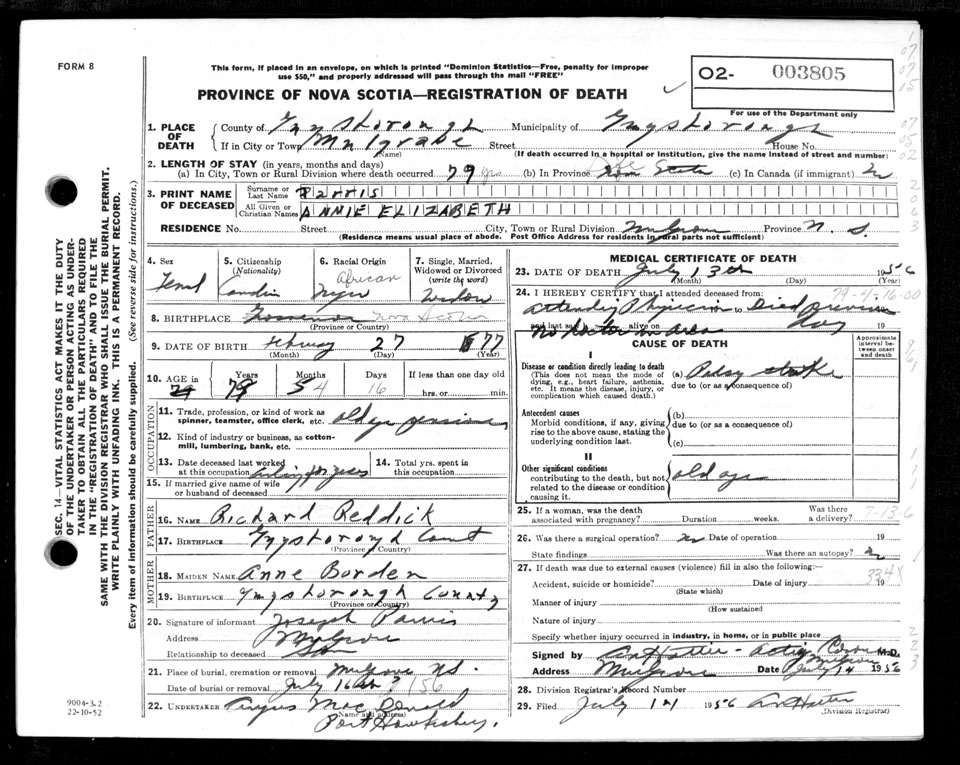 FORM 8
This form, if placed in an envelope, on which is printed "Dominion Statistics—Free, penalty for improper
use $50," and properly addressed will pass through the mail "FREE"
02- 003805
For use of the Department only
PROVINCE OF NOVA SCOTIA—REGISTRATION OF DEATH
1. PLACE OF DEATH
County of Guysborough Municipality of Guysborough
If in City or Town Mulgrave Street House No.
(Name) (If death occurred in a hospital or institution, give the name instead of street and number)
2. LENGTH OF STAY (in years, months and days)
(a) In City, Town or Rural Division where death occurred 79 yrs (b) In Province (c) In Canada (if immigrant)
3. PRINT NAME OF DECEASED
Surname or Last Name Parris
All Given or Christian Names ANNIE ELIZABETH
RESIDENCE No. Street City, Town or Rural Division Mulgrave Province N. S.
(Residence means usual place of abode. Post Office Address for residents in rural parts not sufficient)
4. Sex
5. Citizenship (Nationality)
6. Racial Origin African
7. Single, Married, Widowed or Divorced (write the word) Widow
8. BIRTHPLACE Nova Scotia
(Province or Country)
9. DATE OF BIRTH February 27 1877
(Month) (Day) (Year)
10. AGE in Years 79 Months 4 Days 16 If less than one day old
hrs. or min.
OCCUPATION
11. Trade, profession, or kind of work as
spinner, teamster, office clerk, etc. old age pensioner
12. Kind of industry or business, as cotton-
mill, lumbering, bank, etc.
13. Date deceased last worked
at this occupation
14. Total yrs. spent in
this occupation
15. If married give name of wife
or husband of deceased
FATHER
16. NAME Richard Reddick
17. BIRTHPLACE Guysboroug Count
(Province or Country)
MOTHER
18. MAIDEN NAME Anne Borden
19. BIRTHPLACE Guysborough County
(Province or Country)
20. Signature of informant Joseph Parris
Address Mulgrave
Relationship to deceased Son
21. Place of burial, cremation or removal Mulgrave N.S.
Date of burial or removal July 16th /56
22. UNDERTAKER Angus Mac Donald
(Name and address)
Port Hawksbury.
MEDICAL CERTIFICATE OF DEATH
23. DATE OF DEATH July 13th 1956
(Month) (Day) (Year)
79-4-16-00
24. I HEREBY CERTIFY that I attended deceased from:
attending Physician to Died previous
and last saw alive on day 19
No doctor in area
CAUSE OF DEATH
Approximate interval between onset and death
I
Disease or condition directly leading to death
(This does not mean the mode of
dying, e.g., heart failure, asthenia,
etc. It means the disease, injury, or
complication which caused death.)
(a)
due to (or as a consequence of)
Antecedent causes
Morbid conditions, if any, giving
rise to the above cause, stating the
underlying condition last.
(b)
due to (or as a consequence of)
(c)
II
Other significant conditions
contributing to the death, but not
related to the disease or condition
causing it.
old age
25. If a woman, was the death
associated with pregnancy? Duration weeks. Was there
a delivery? 7-13-6
26. Was there a surgical operation? no Date of operation
State findings Was there an autopsy? no
27. If death was due to external causes (violence) fill in also the following:—
334X
Accident, suicide or homicide? Date of injury 19
(State which)
Manner of injury
(How sustained
Nature of injury
Specify whether injury occurred in industry, in home, or in public place
Signed by M.D.
Address Mulgrave Date July 14 1956
28. Division Registrar's Record Number
29. Filed July 14 1956
(Division Registrar)
SEC. 14—VITAL STATISTICS ACT MAKES IT THE DUTY
OF THE UNDERTAKER OR PERSON ACTING AS UNDER-
TAKER TO OBTAIN ALL THE PARTICULARS REQUIRED
IN THE "REGISTRATION OF DEATH" AND TO FILE THE
SAME WITH THE DIVISION REGISTRAR WHO SHALL ISSUE THE BURIAL PERMIT.
WRITE PLAINLY WITH UNFADING INK. THIS IS A PERMANENT RECORD.
Every item of information should be carefully supplied. (See reverse side for instructions.)
9004-3.2
22-10-52